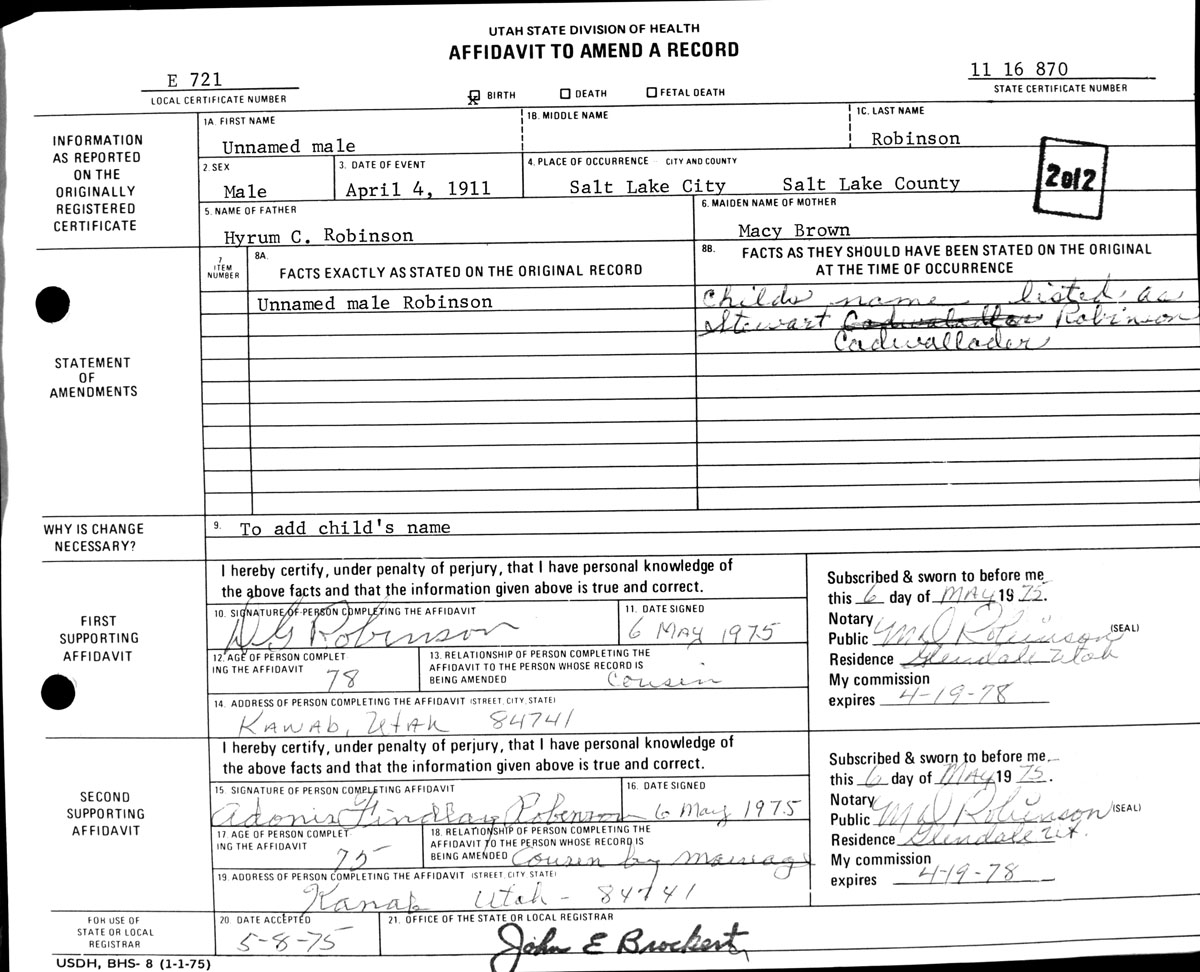 UTAH STATE DIVISION OF HEALTH
AFFIDAVIT TO AMEND A RECORD
E 721
LOCAL CERTIFICATE NUMBER
X BIRTH DEATH FETAL DEATH
11 16 870
STATE CERTIFICATE NUMBER
INFORMATION
AS REPORTED
ON THE
ORIGINALLY
REGISTERED
CERTIFICATE
1A. FIRST NAME 1B. MIDDLE NAME 1C. LAST NAME
Unnamed male Robinson
2. SEX 3. DATE OF EVENT 4. PLACE OF OCCURRENCE - CITY AND COUNTY
Male April 4, 1911 Salt Lake City Salt Lake County
2 of 2
5. NAME OF FATHER 6. MAIDEN NAME OF MOTHER
Hyrum C. Robinson Macy Brown
STATEMENT
OF
AMENDMENTS
7
ITEM
NUMBER
8A.
FACTS EXACTLY AS STATED ON THE ORIGINAL RECORD
8B. FACTS AS THEY SHOULD HAVE BEEN STATED ON THE ORIGINAL
AT THE TIME OF OCCURRENCE
Unnamed male Robinson
Childs name listed as
Stewart Cadwaladlor Robinson
Cadwallader
WHY IS CHANGE
NECESSARY?
9. To add child's name
FIRST
SUPPORTING
AFFIDAVIT
I hereby certify, under penalty of perjury, that I have personal knowledge of
the above facts and that the information given above is true and correct.
10. SIGNATURE OF PERSON COMPLETING THE AFFIDAVIT 11. DATE SIGNED
D G Robinson 6 MAY 1975
12. AGE OF PERSON COMPLET
ING THE AFFIDAVIT 78
13. RELATIONSHIP OF PERSON COMPLETING THE
AFFIDAVIT TO THE PERSON WHOSE RECORD IS
BEING AMENDED Cousin
14. ADDRESS OF PERSON COMPLETING THE AFFIDAVIT (STREET, CITY, STATE)
KANAB, UTAH 84741
Subscribed & sworn to before me
this 6 day of MAY 1975.
Notary
Public M D Robinson (SEAL)
Residence Glendale Utah
My commission
expires 4-19-78
SECOND
SUPPORTING
AFFIDAVIT
I hereby certify, under penalty of perjury, that I have personal knowledge of
the above facts and that the information given above is true and correct.
15. SIGNATURE OF PERSON COMPLETING AFFIDAVIT 16. DATE SIGNED
Adonis Findlay Robinson 6 May 1975
17. AGE OF PERSON COMPLET
ING THE AFFIDAVIT 75
18. RELATIONSHIP OF PERSON COMPLETING THE
AFFIDAVIT TO THE PERSON WHOSE RECORD IS
BEING AMENDED Cousin by marriage
19. ADDRESS OF PERSON COMPLETING THE AFFIDAVIT (STREET, CITY, STATE)
Kanab Utah - 84741
Subscribed & sworn to before me
this 6 day of MAY 1975.
Notary
Public M D Robinson (SEAL)
Residence Glendale Ut.
My commission
expires 4-19-78
FOR USE OF
STATE OR LOCAL
REGISTRAR
20. DATE ACCEPTED 21. OFFICE OF THE STATE OR LOCAL REGISTRAR
5-8-75 John E Brockert
USDH, BHS- 8 (1-1-75)